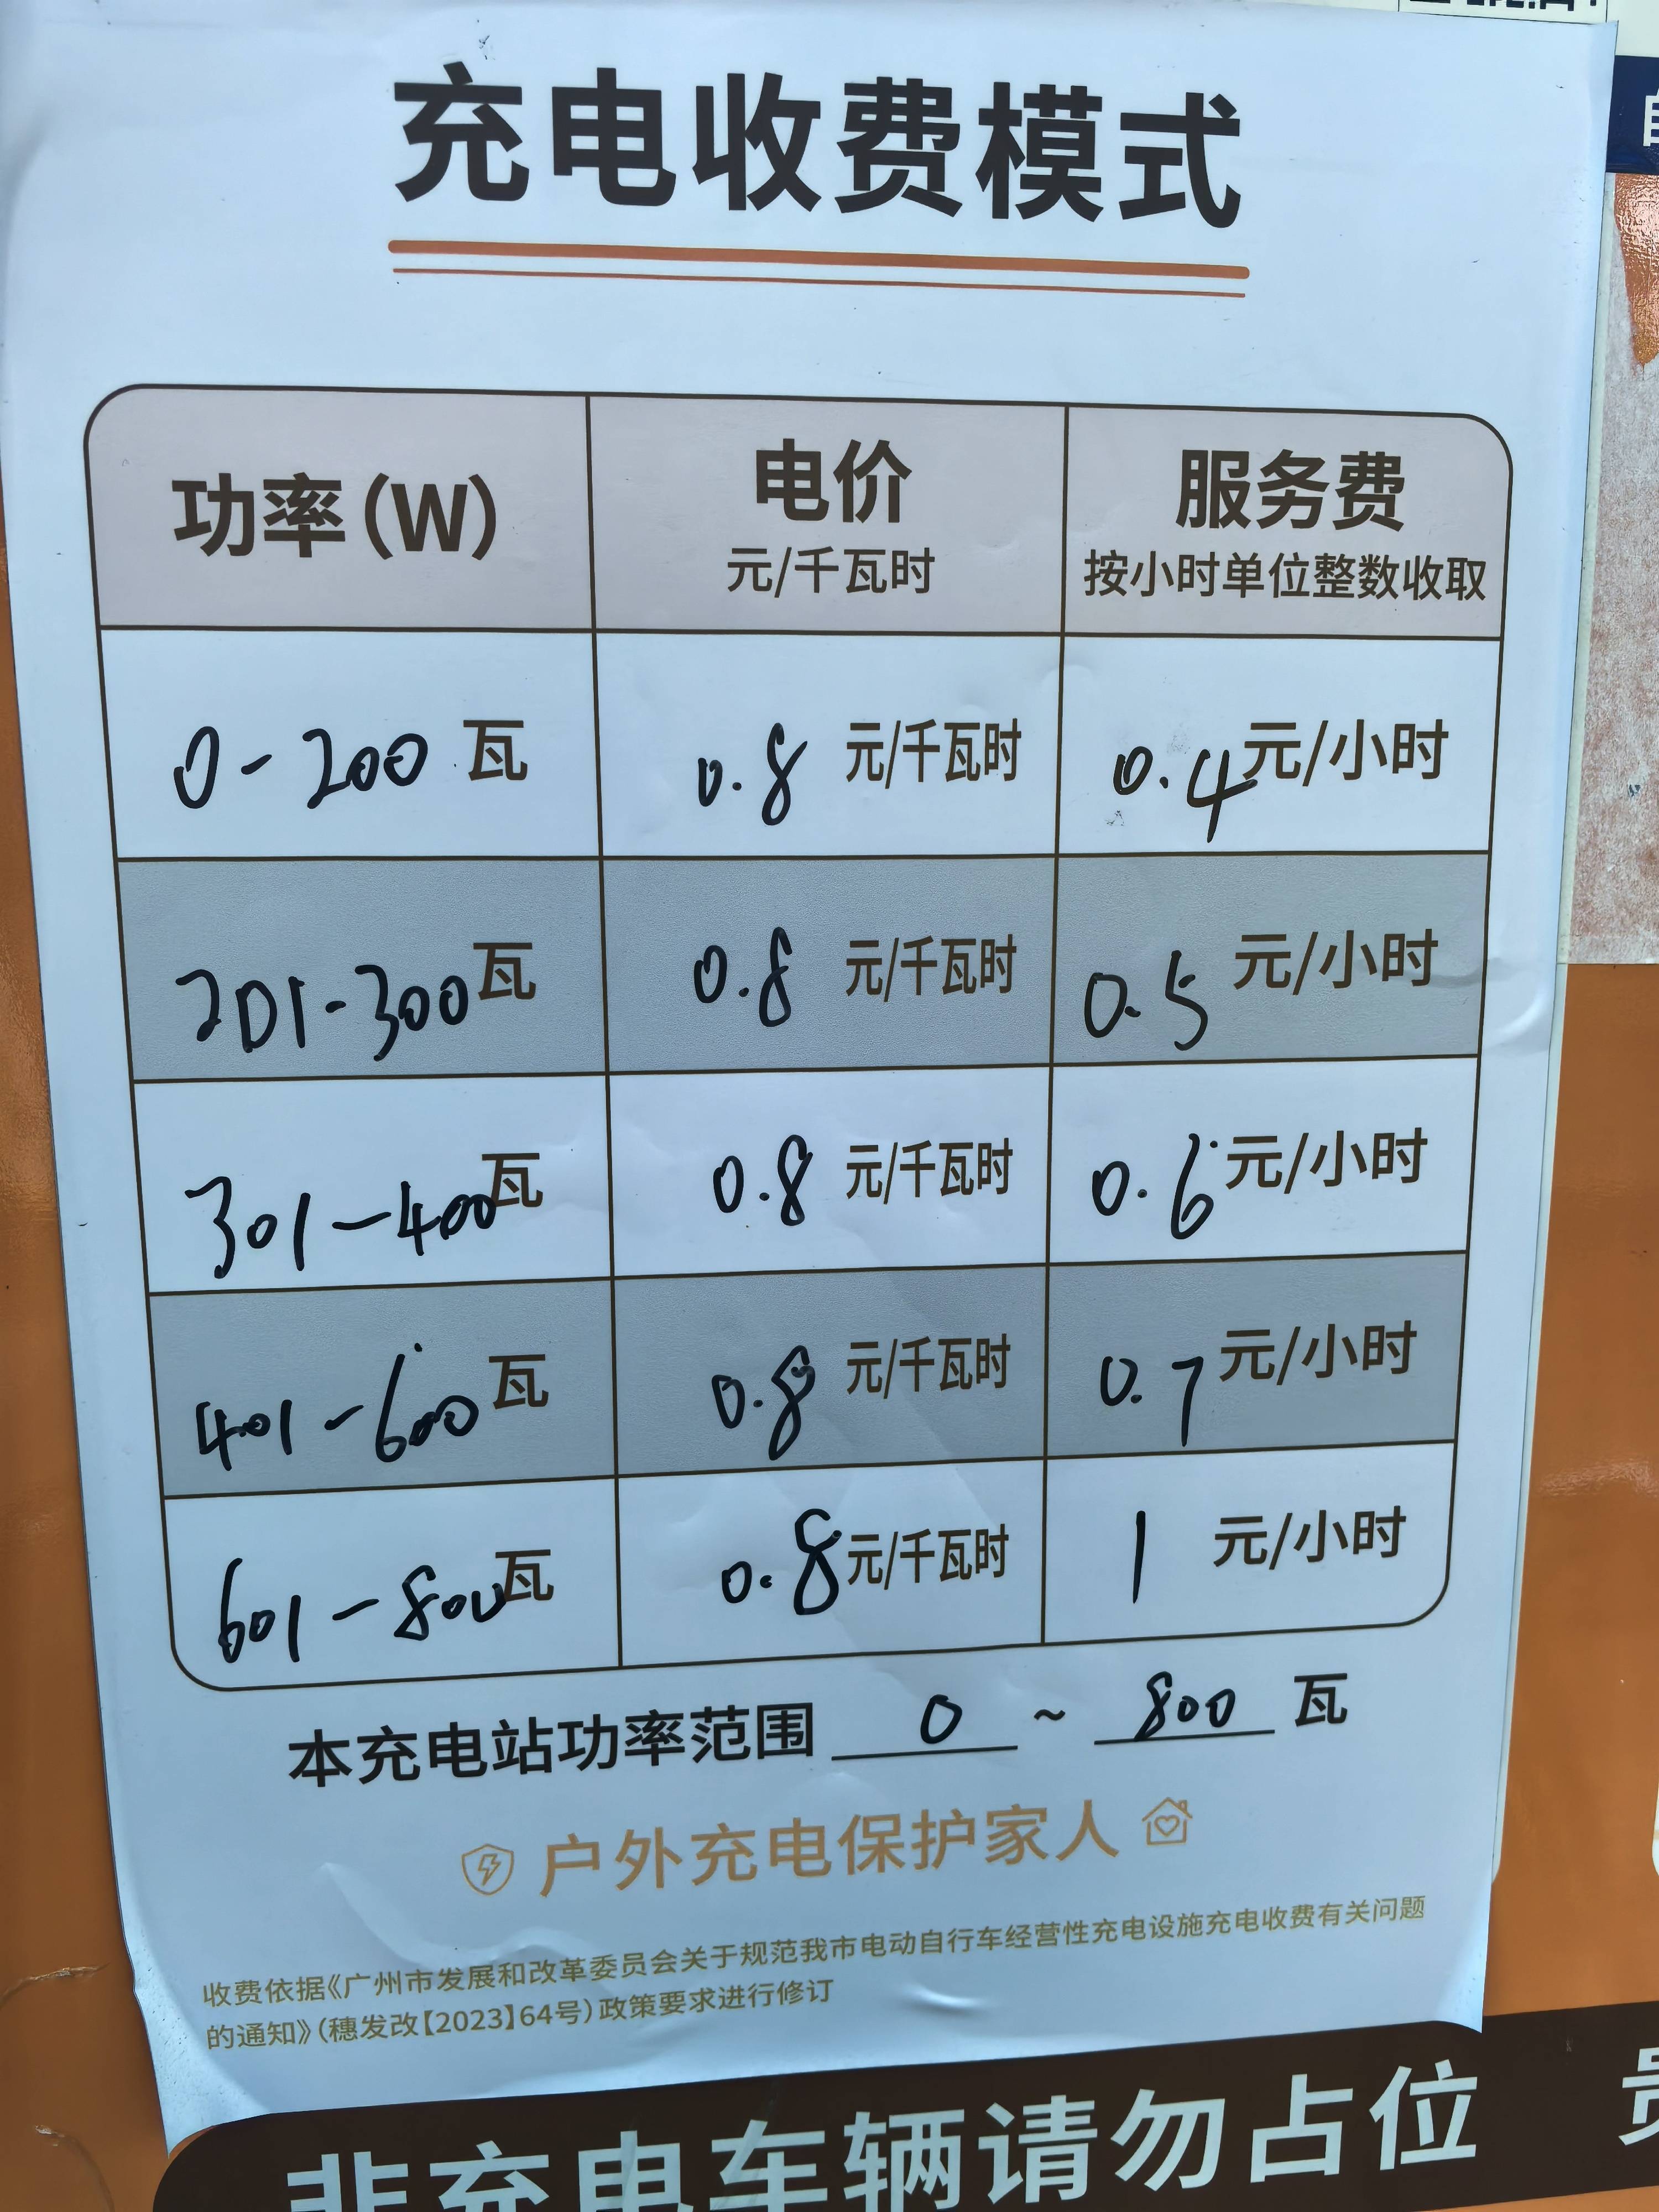 充电收费模式
功率(W) 电价 服务费
元/千瓦时 按小时单位整数收取
0-200 瓦 0.8 元/千瓦时 0.4 元/小时
201-300 瓦 0.8 元/千瓦时 0.5 元/小时
301-400 瓦 0.8 元/千瓦时 0.6 元/小时
401-600 瓦 0.8 元/千瓦时 0.7 元/小时
601-800 瓦 0.8 元/千瓦时 1 元/小时
本充电站功率范围 0 ~ 800 瓦
户外充电保护家人
收费依据《广州市发展和改革委员会关于规范我市电动自行车经营性充电设施充电收费有关问题
的通知》(穗发改【2023】64号)政策要求进行修订
非充电车辆请勿占位